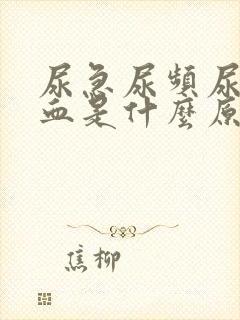 尿急尿頻尿
血是什麼原
焦柳